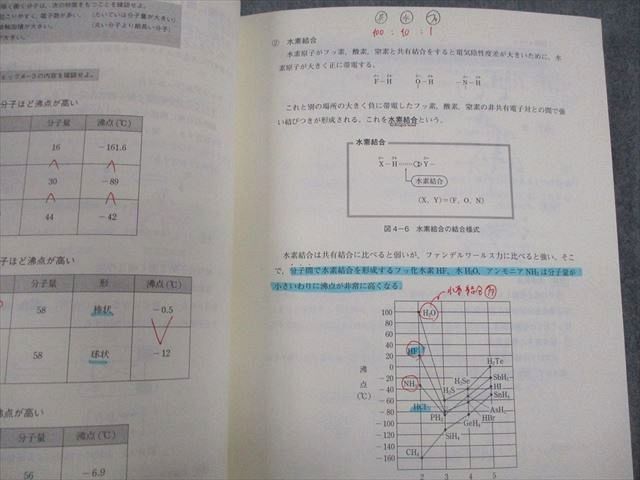 強く働く分子は，次の特徴をもつことを確認せよ。
起こりやすく，電子数が多い。　(たいていは分子量が大きい)
接触面積が大きい。　(丸い分子より細長い分子)
分子ほど沸点が高い
分子量　沸点(℃)
16　−161.6
30　−89
44　−42
子ほど沸点が高い
分子量　形　沸点(℃)
58　棒状　−0.5
58　球状　−12
沸点が高い
分子量　沸点(℃)
56　−6.9
100 : 10 : 1
② 水素結合
水素原子がフッ素，酸素，窒素と共有結合をすると電気陰性度差が大きいために，水
素原子が大きく正に帯電する。
δ− δ+　δ− δ+　δ− δ+
F−H　O−H　−N−H
これと別の場所の大きく負に帯電したフッ素，酸素，窒素の非共有電子対との間で強
い結びつきが形成される。これを水素結合という。
水素結合
X−H……Y−
水素結合
(X, Y)=(F, O, N)
図4−6　水素結合の結合様式
水素結合は共有結合に比べると弱いが，ファンデルワールス力に比べると強い。そこ
で，分子間で水素結合を形成するフッ化水素HF，水H₂O，アンモニアNH₃は分子量が
小さいわりに沸点が非常に高くなる。
水素結合
沸点(℃)
100
80
60
40
20
0
−20
−40
−60
−80
−100
−120
−140
−160
H₂O
HF
NH₃
HCl
CH₄
H₂S
PH₃
SiH₄
H₂Se
AsH₃
HBr
GeH₄
H₂Te
SbH₃
HI
SnH₄
2　3　4　5